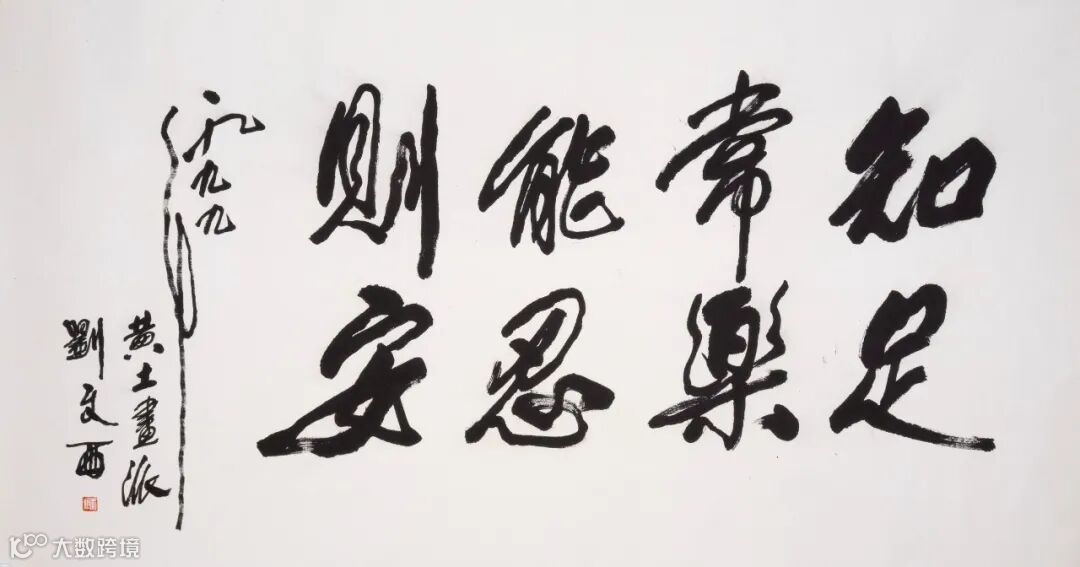 知足
常樂
能忍
則安
一九九九年
黄土畫派
劉文西
大数跨境